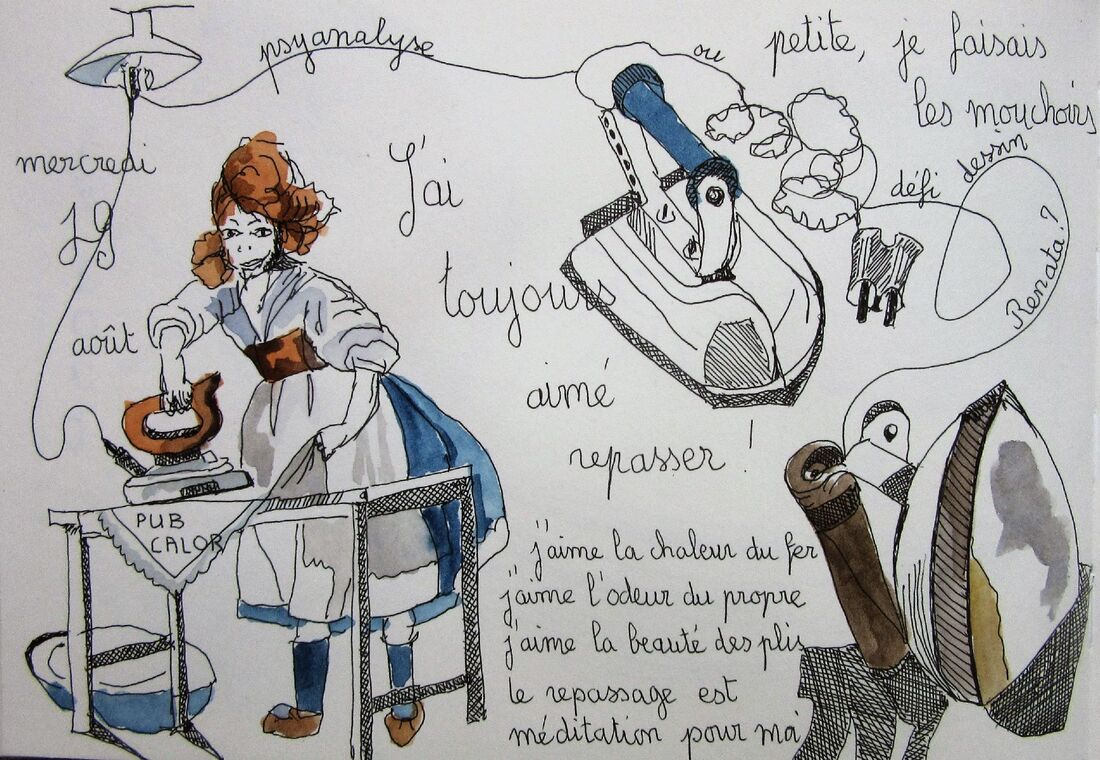 psyanalyse
ou
petite, je faisais
les mouchoirs
mercredi
19
août
J'ai
toujours
aimé
repasser !
défi dessin
Renata ?
PUB
CALOR
j'aime la chaleur du fer
j'aime l'odeur du propre
j'aime la beauté des plis
le repassage est
méditation pour moi